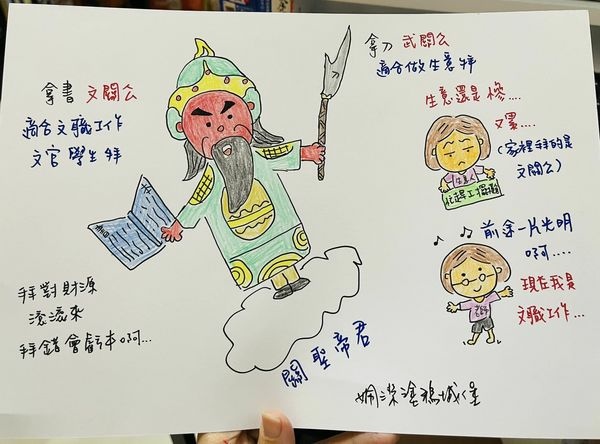 拿書 文關公
適合文職工作
文官學生拜
拜對財源
滾滾來
拜錯會虧本啊...
關聖帝君
拿刀 武關公
適合做生意拜
生意還是慘....
又累...
(家裡拜的是
文關公)
生意人
前途一片光明
啊....
現在我是
文職工作...
老師